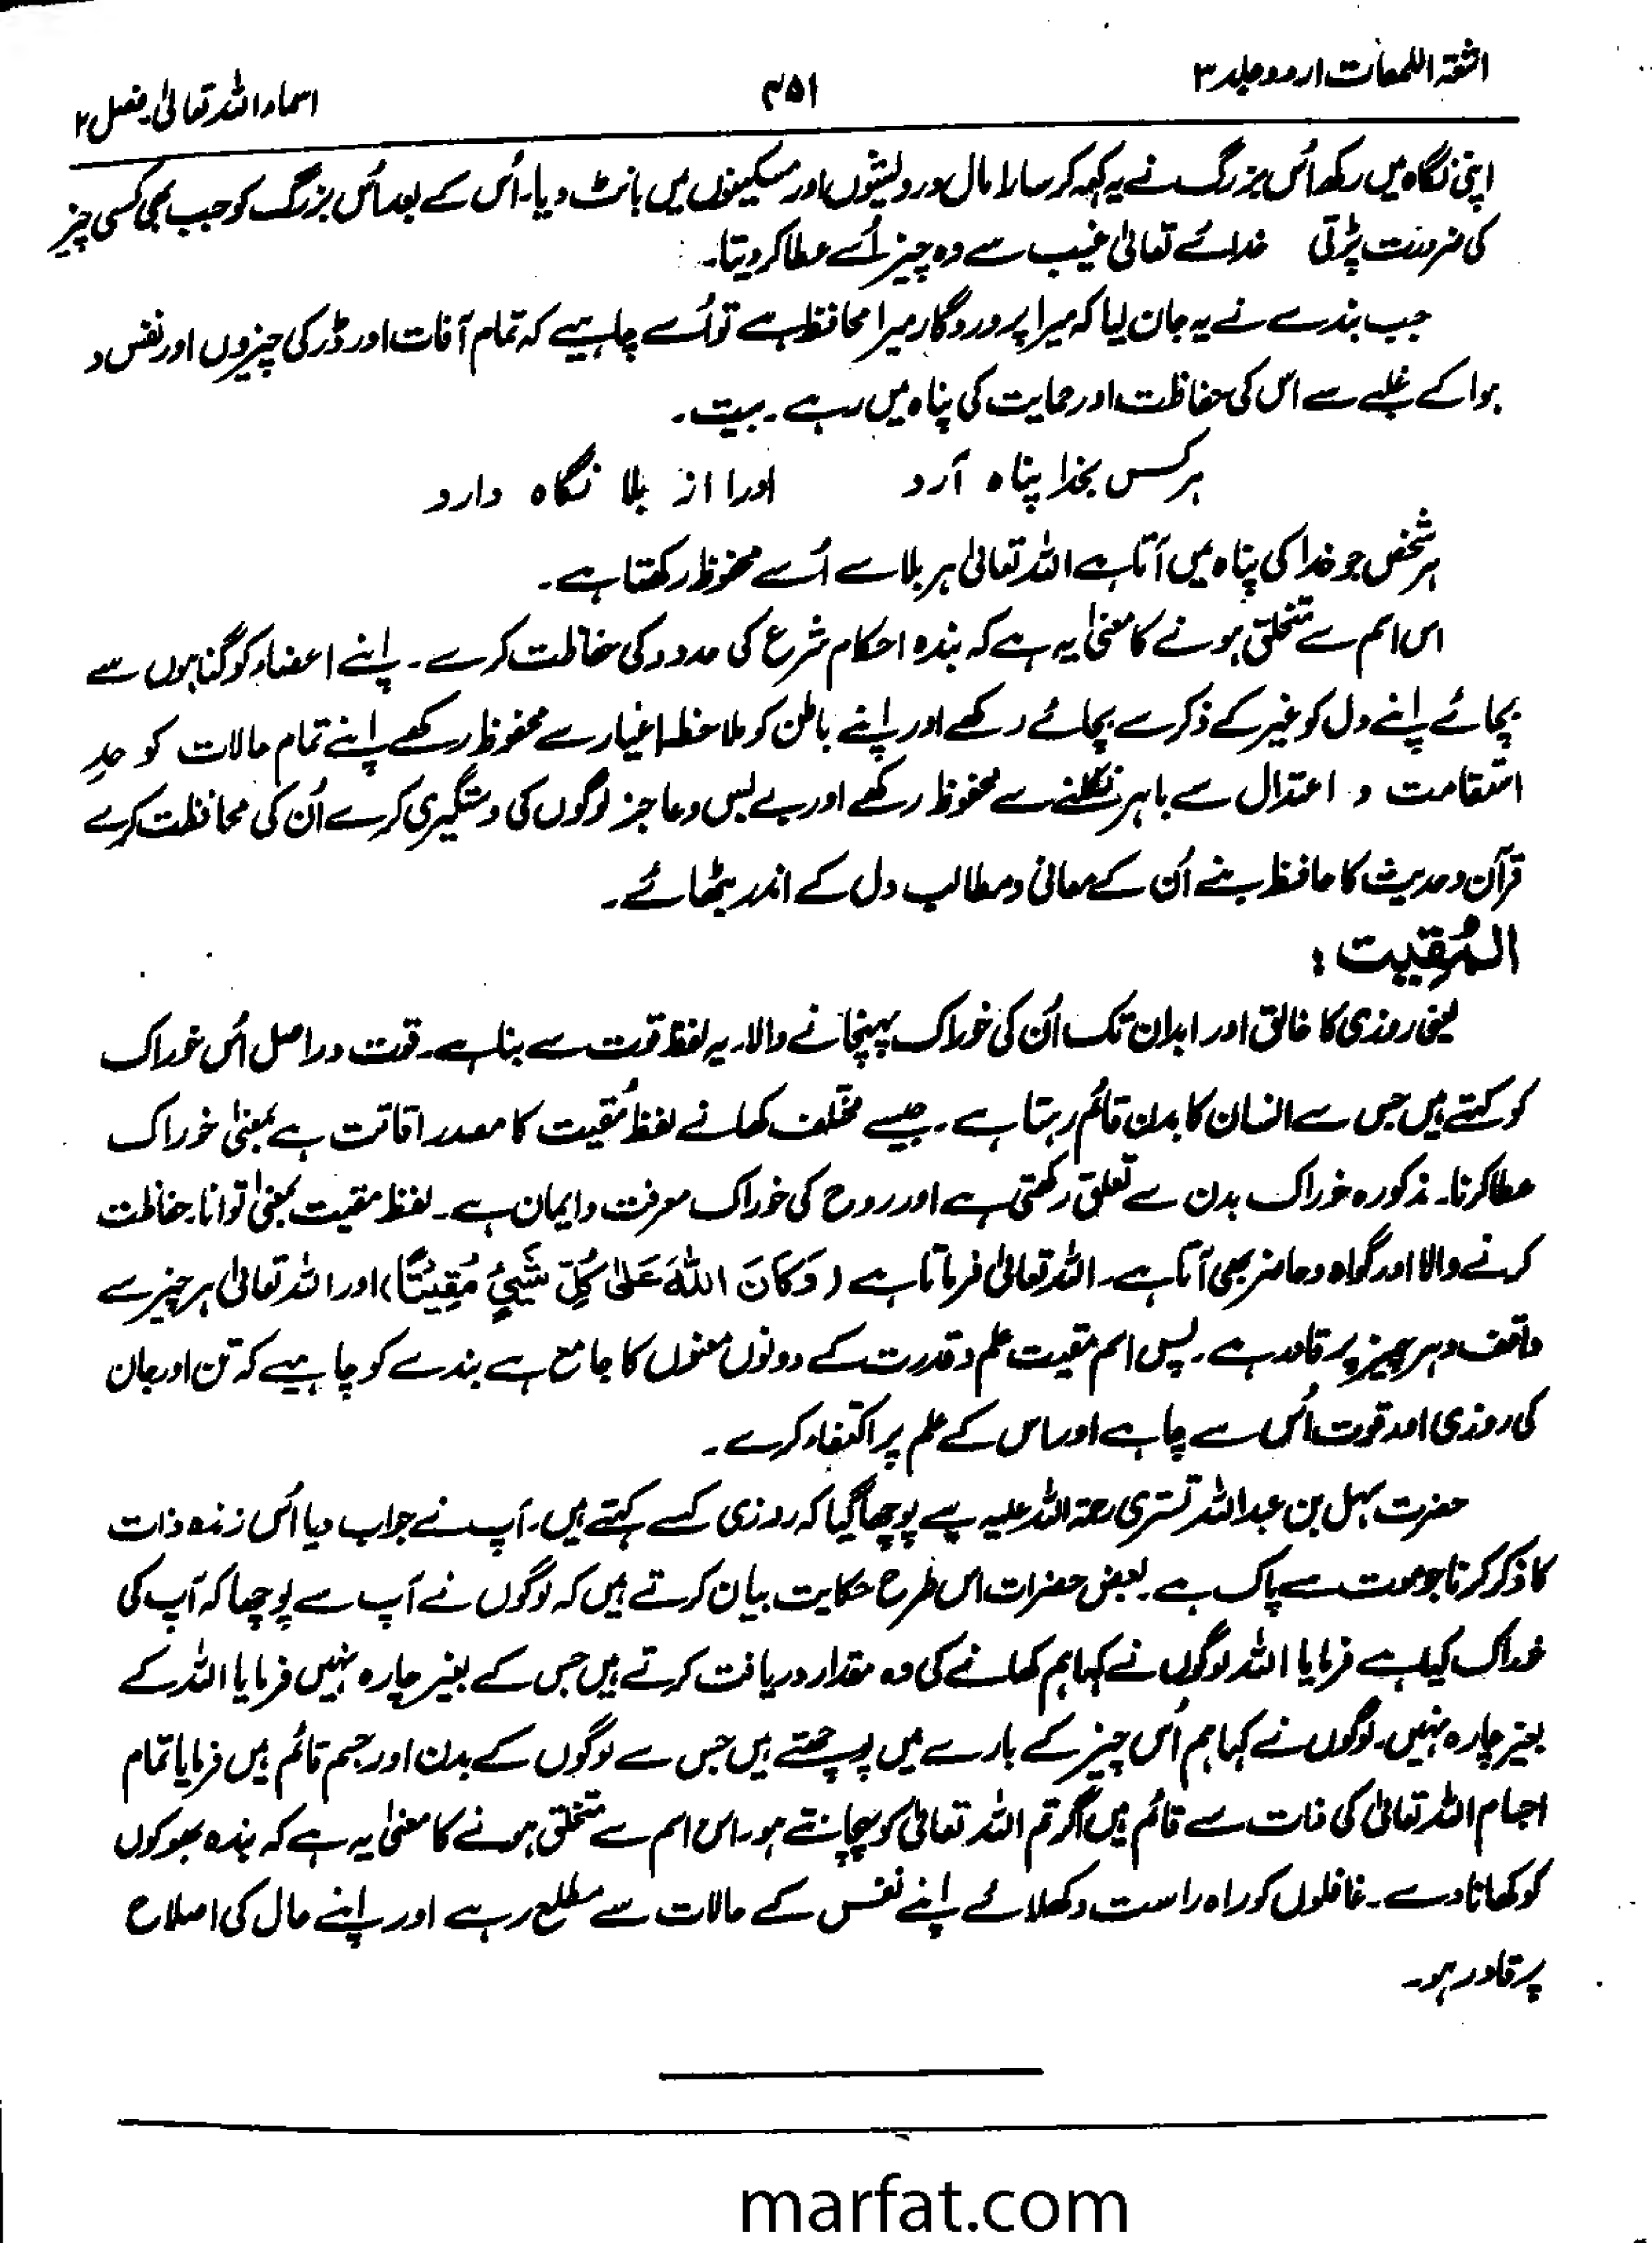 اشعۃ اللمعات اردو جلد ۳
۴۵۱
اسماء اللہ تعالیٰ۔ فصل ۲
اپنی نگاہ میں رکھ اُس بزرگ نے یہ کہہ کر سارا مال درویشوں اور مسکینوں میں بانٹ دیا۔ اُس کے بعد اُس بزرگ کو جب بھی کسی چیز
کی ضرورت پڑتی خدائے تعالیٰ غیب سے وہ چیز اُسے عطا کر دیتا۔
جب بندے نے یہ جان لیا کہ میرا پروردگار میرا محافظ ہے تو اُسے چاہیے کہ تمام آفات اور ڈر کی چیزوں اور نفس و
ہوا کے غلبے سے اس کی حفاظت اور حمایت کی پناہ میں رہے۔ بیت۔
ہر کس بخدا پناہ آرد اورا از بلا نگاہ دارد
ہر شخص جو خدا کی پناہ میں آتا ہے اللہ تعالیٰ ہر بلا سے اُسے محفوظ رکھتا ہے۔
اس اسم سے متخلق ہونے کا معنیٰ یہ ہے کہ بندہ احکام شرع کی حدود کی حفاظت کرے۔ اپنے اعضاء کو گناہوں سے
بچائے اپنے دل کو غیر کے ذکر سے بچائے رکھے اور اپنے باطن کو ملاحظہ اغیار سے محفوظ رکھے اپنے تمام حالات کو حدِ
استقامت و اعتدال سے باہر نکلنے سے محفوظ رکھے اور بے بس و عاجز لوگوں کی دستگیری کرے اُن کی محافظت کرے
قرآن و حدیث کا حافظ بنے اُن کے معانی و مطالب دل کے اندر بٹھائے۔
المُقِیت :
یعنی روزی کا خالق اور ابدان تک اُن کی خوراک پہنچانے والا۔ یہ لفظ قوت سے بنا ہے۔ قوت دراصل اُس خوراک
کو کہتے ہیں جس سے انسان کا بدن قائم رہتا ہے۔ جیسے مختلف کھانے لفظ مُقیت کا مصدر اقاتت ہے بمعنیٰ خوراک
عطا کرنا۔ مذکورہ خوراک بدن سے تعلق رکھتی ہے اور روح کی خوراک معرفت و ایمان ہے۔ لفظ مقیت بمعنیٰ توانا۔ حفاظت
کرنے والا اور گواہ و حاضر بھی آتا ہے۔ اللہ تعالیٰ فرماتا ہے (وَکَانَ اللّٰهُ عَلیٰ کُلِّ شَیْیءٍ مُقِیْتًا) اور اللہ تعالیٰ ہر چیز سے
واقف و ہر چیز پر قادر ہے۔ پس اسم مقیت علم و قدرت کے دونوں معنوں کا جامع ہے بندے کو چاہیے کہ تن اور جان
کی روزی اور قوت اُس سے چاہے اور اس کے علم پر اکتفاء کرے۔
حضرت سہل بن عبد اللہ تستری رحمۃ اللہ علیہ سے پوچھا گیا کہ روزی کسے کہتے ہیں۔ آپ نے جواب دیا اُس زندہ ذات
کا ذکر کرنا جو موت سے پاک ہے۔ بعض حضرات اس طرح حکایت بیان کرتے ہیں کہ لوگوں نے آپ سے پوچھا کہ آپ کی
خوراک کیا ہے فرمایا اللہ لوگوں نے کہا ہم کھانے کی وہ مقدار دریافت کرتے ہیں جس کے بغیر چارہ نہیں فرمایا اللہ کے
بغیر چارہ نہیں۔ لوگوں نے کہا ہم اُس چیز کے بارے میں پوچھتے ہیں جس سے لوگوں کے بدن اور جسم قائم ہیں فرمایا تمام
اجسام اللہ تعالیٰ کی ذات سے قائم ہیں اگر تم اللہ تعالیٰ کو پہچانتے ہو۔ اس اسم سے متخلق ہونے کا معنیٰ یہ ہے کہ بندہ بھوکوں
کو کھانا دے۔ غافلوں کو راہ راست دکھلائے اپنے نفس کے حالات سے مطلع رہے اور اپنے حال کی اصلاح
پر قادر ہو۔
marfat.com